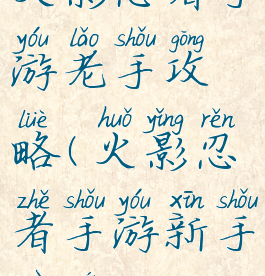 yóu lǎo shǒu gōng
游老手攻
lüè huǒ yǐng rěn
略(火影忍
zhě shǒu yóu xīn shǒu
者手游新手